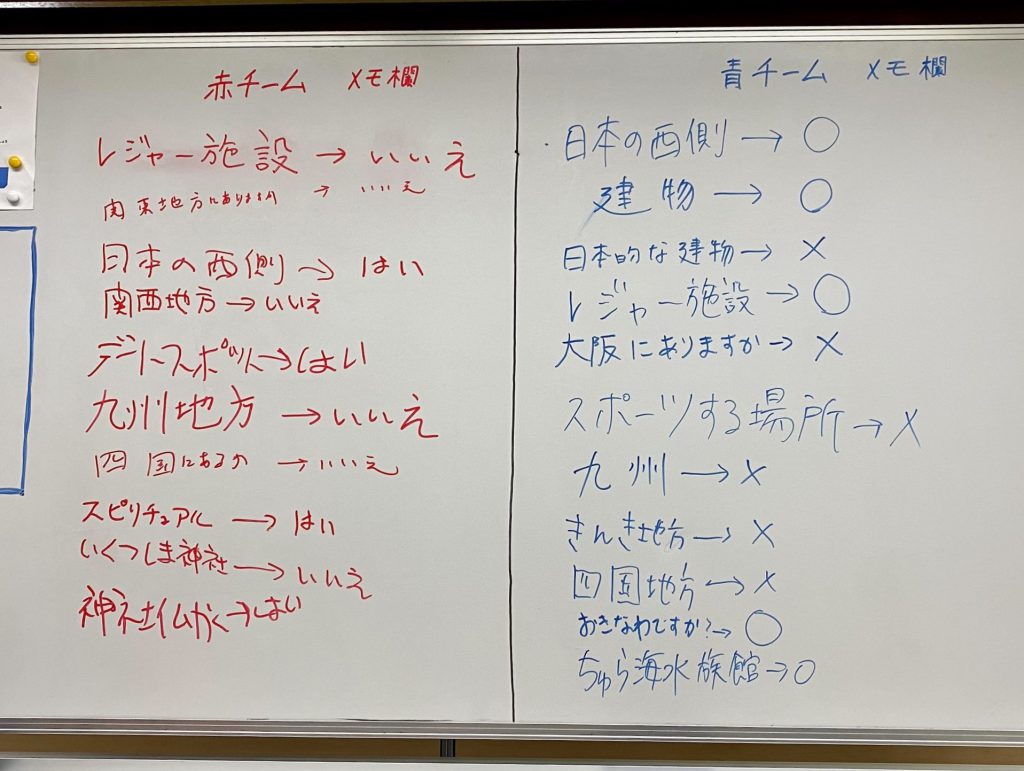 赤チーム メモ欄
レジャー施設 → いいえ
関東地方にありますか → いいえ
日本の西側 → はい
関西地方 → いいえ
デートスポット → はい
九州地方 → いいえ
四国にあるか → いいえ
スピリチュアル → はい
いくつしま神社 → いいえ
神社仏かく → はい
青チーム メモ欄
・日本の西側 → ○
建物 → ○
日本的な建物 → ×
レジャー施設 → ○
大阪にありますか → ×
スポーツする場所 → ×
九州 → ×
きんき地方 → ×
四国地方 → ×
おきなわですか? → ○
ちゅら海水族館 → ○